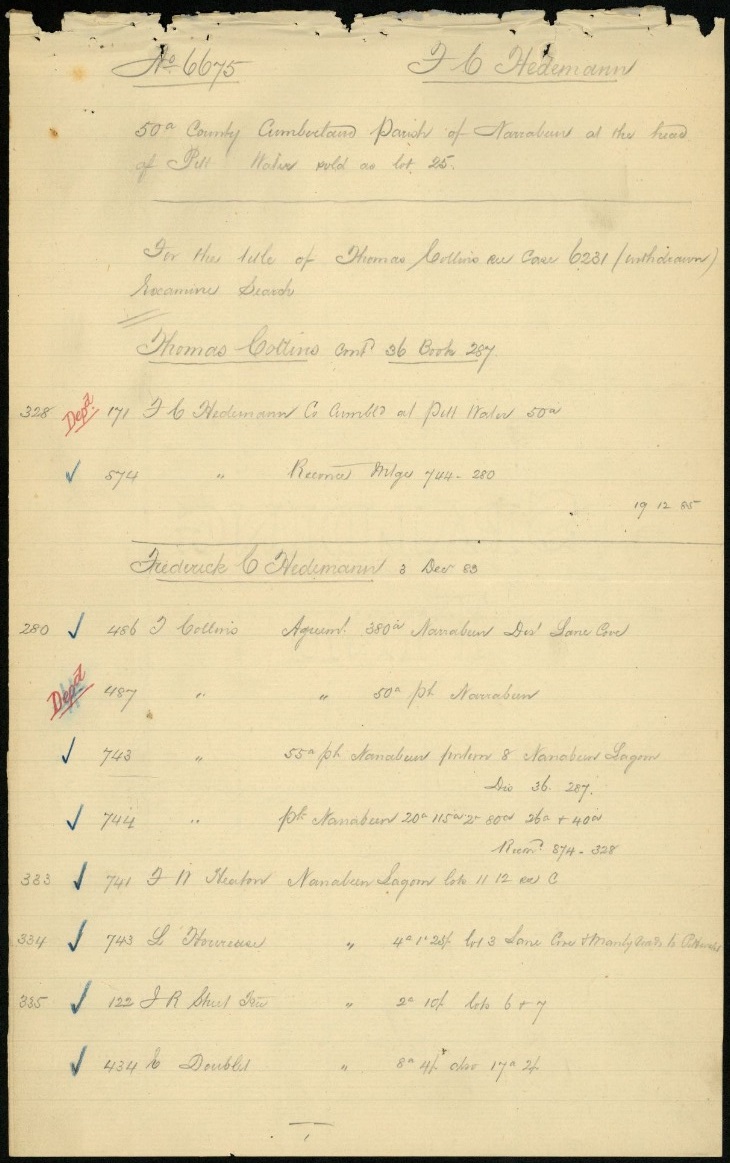 No 6675 F C Hedemann
50a County Cumberland Parish of Narrabeen at the head
of Pitt Water sold as lot 25.
For the title of Thomas Collins see Case 6231 (withdrawn)
Examine Search
Thomas Collins Contd 36 Book 287
328 Depd 171 F C Hedemann Co Cumbld at Pitt Water 50a
✓ 574 " Reconce Mtge 744 - 280
19 12 85
Frederick C Hedemann 3 Decr 83
280 ✓ 486 T Collins Agreemt 380a Narrabeen Lane Cove
Depd 487 " " 50a pt Narrabeen
✓ 743 " 55a pt Narrabeen portion 8 Narrabeen Lagoon
36. 287.
✓ 744 pt Narrabeen 20a 115a 2r 80a 26a + 40a
Recon 574 - 328
333 ✓ 741 F W Heaton Narrabeen Lagoon lots 11 12 C
334 ✓ 743 " 4a 1r 28p lot 3 Lane Cove & Manly roads to
335 ✓ 122 J R " 2a 10p lots 6 + 7
✓ 434 E Doublet " 8a 4p also 17a 2p